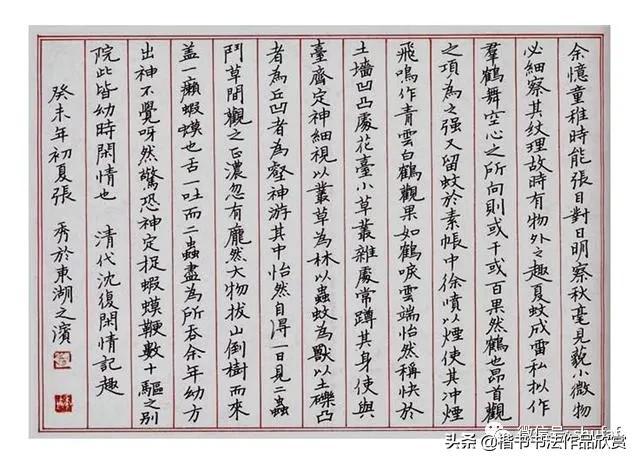 余憶童稚時能張目對日明察秋毫見藐小微物
必細察其紋理故時有物外之趣夏蚊成雷私拟作
羣鶴舞空心之所向則或千或百果然鶴也昂首觀
之項為之强又留蚊於素帳中徐噴以煙使其冲煙
飛鳴作青雲白鶴觀果如鶴唳雲端怡然稱快於
土墻凹凸處花臺小草叢雜處常蹲其身使與
臺齊定神細視以叢草為林以蟲蚊為獸以土礫凸
者為丘凹者為壑神游其中怡然自得一日見二蟲
鬥草間觀之正濃忽有龐然大物拔山倒樹而來
盖一癩蝦蟆也舌一吐而二蟲盡為所吞余年幼方
出神不覺呀然驚恐神定捉蝦蟆鞭數十驅之别
院此皆幼時閑情也 清代沈復閑情記趣
癸未年初夏張 秀於東湖之濱
头条 @楷书书法作品欣赏